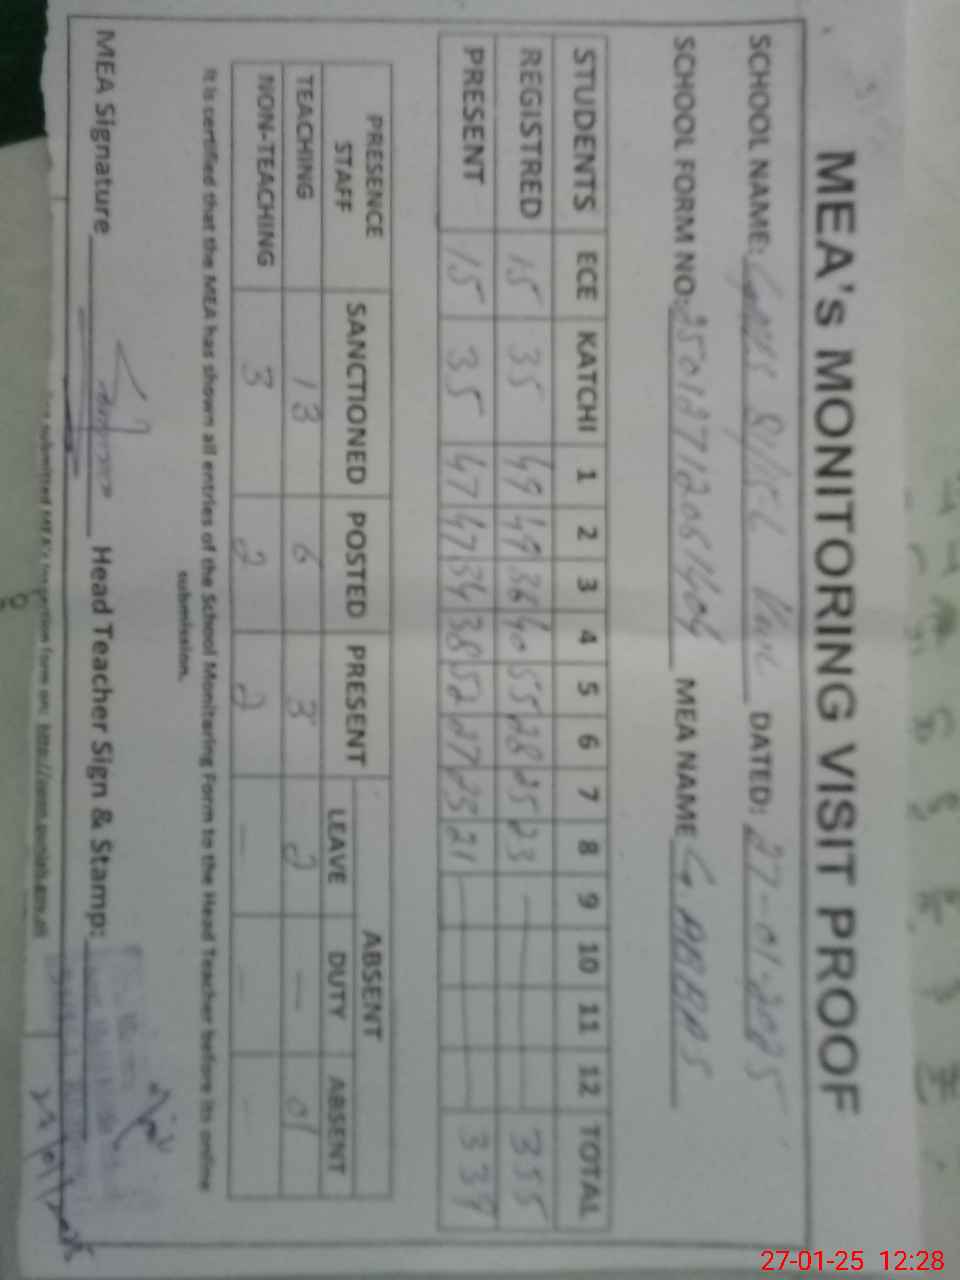 MEA's MONITORING VISIT PROOF
SCHOOL NAME: DATED: 27-01-2025
SCHOOL FORM NO: MEA NAME G ABBAS
STUDENTS ECE KATCHI 1 2 3 4 5 6 7 8 9 10 11 12 TOTAL
REGISTRED 15 35 49 49 36 40 55 28 25 23 — 355
PRESENT 15 35 47 47 34 38 52 27 23 21 — 339
PRESENCE STAFF SANCTIONED POSTED PRESENT ABSENT
LEAVE DUTY ABSENT
TEACHING 13 6 3 2 — 01
NON-TEACHING 3 2 2 — - -
It is certified that the MEA has shown all entries of the School Monitoring Form to the Head Teacher before its online
submission.
MEA Signature Head Teacher Sign & Stamp:
submitted MEA's inspection form on:
27-01-25 12:28